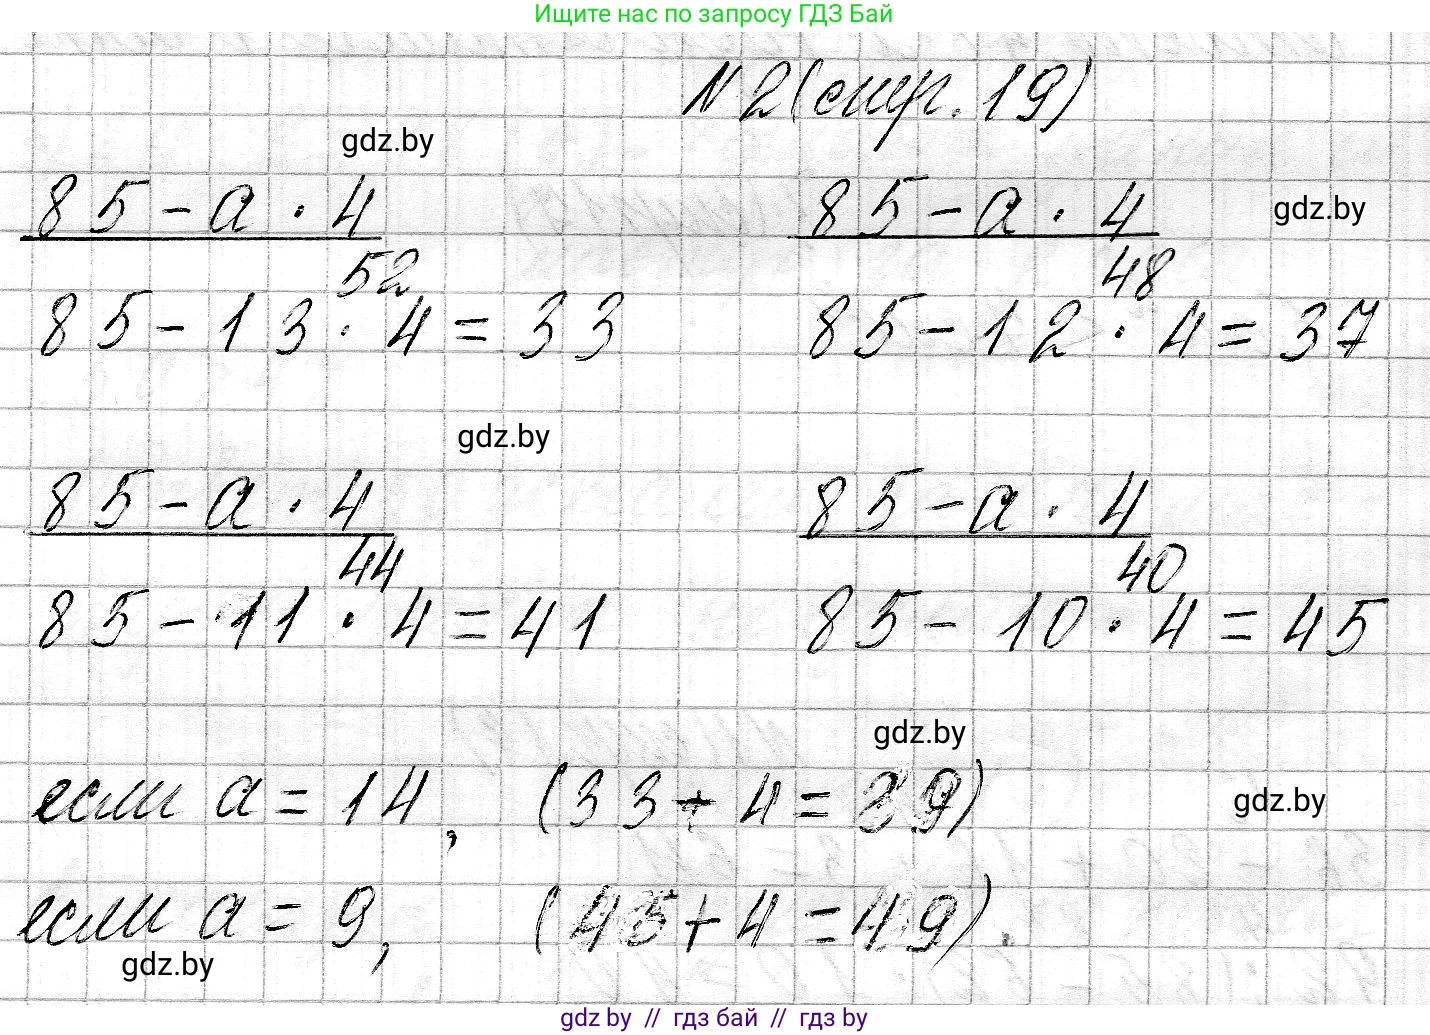 Ищите нас по запросу ГДЗ Бай
N 2 (стр. 19)
gdz.by
85 - а · 4
85 - а · 4
gdz.by
52
48
85 - 13 · 4 = 33
85 - 12 · 4 = 37
gdz.by
85 - а · 4
85 - а · 4
44
40
85 - 11 · 4 = 41
85 - 10 · 4 = 45
gdz.by
если а = 14, (33 + 4 = 29)
gdz.by
если а = 9, (45 + 4 = 49).
gdz.by
gdz by // гдз бай // гдз by